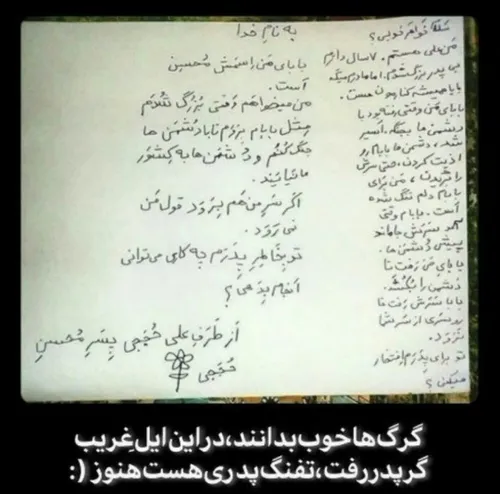 به نام خدا
سلام خواهر خوبی؟
من علی هستم. ۷ سال دارم
بی پدر بزرگ شدم. اما مادرم میگه
بابا همیشه کنارمون هست.
بابای من وقتی رفته بود با
دشمن ها بجنگه، اسیر
شد، دشمن ها بابام رو
اذیت کردن، حتی سرش
را بریدن، من برای
بابام دلم تنگ شده
است. بابام وقتی
آمد سرش جا ماند
پیش دشمن ها.
بابای من رفت تا
دشمن را بکشد.
بابا سرش رفت تا
روسری از سر شما
نرود.
تو برای پدرم افتخار
میکنی؟
بابای من را سمش محسن
است.
من میخواهم وقتی بزرگ شدم
مثل بابام بروم تا با دشمن ها
جنگ کنم و دشمن ها به کشور
ما نیایند.
اگر سر من هم برود قول من
نمی رود.
تو بخاطر پدرم چه کاری می توانی
انجام بدهی؟
از طرف علی حججی پسر محسن
حججی
گرگ ها خوب بدانند، در این ایل غریب
گر پدر رفت، تفنگ پدری هست هنوز (: